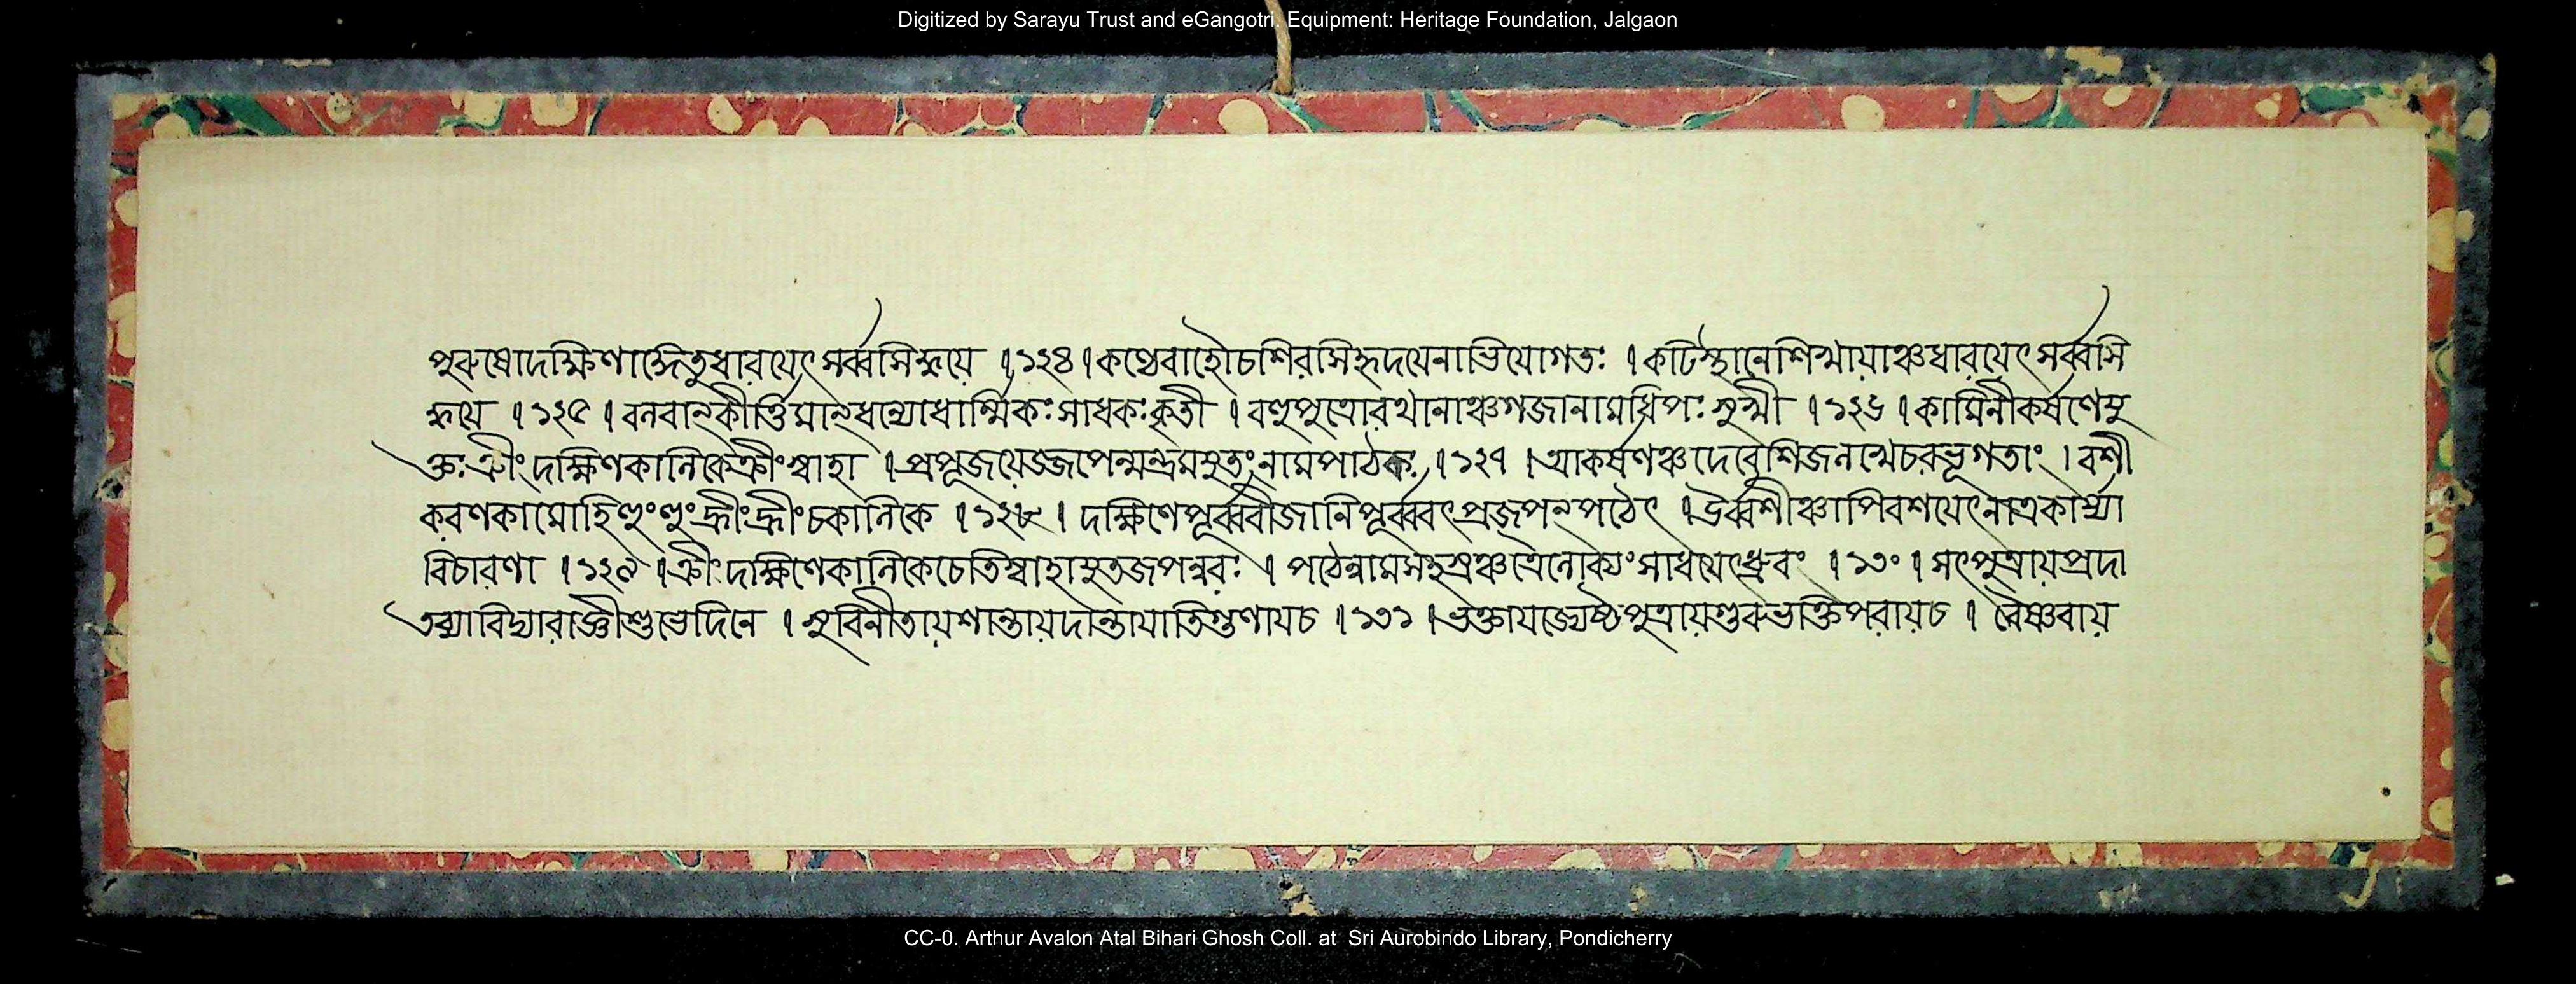 Digitized by Sarayu Trust and eGangotri. Equipment: Heritage Foundation, Jalgaon
পুরুষোদক্ষিণাঙ্গেতুধারয়েৎসর্ব্বসিদ্ধয়ে । ১২৪ । কণ্ঠেবাহৌচশিরসিহৃদয়েনাভিযোগতঃ । কটিস্থানেশিখায়াঞ্চধারয়েৎসর্ব্বসি
দ্ধয়ে । ১২৫ । বনবান্কীর্ত্তিমান্ধন্যোধার্ম্মিকঃসাধকঃকৃতী । বহুপুত্রোরথানাঞ্চগজানামধিপঃসুখী । ১২৬ । কামিনীকর্ষণেযু
ক্তঃক্রীংদক্ষিণকালিকেক্রীংস্বাহা । প্রপূজয়েজ্জপেন্মন্ত্রমযুতংনামপাঠকঃ । ১২৭ । আকর্ষণঞ্চদেবেশিজলখেচরভূগতাং । বশী
করণকামোহিহুংহুংহ্রীংহ্রীংচকালিকে । ১২৮ । দক্ষিণেপূর্ব্ববীজানিপূর্ব্ববৎপ্রজপন্পঠেৎ । উর্ব্বশীঞ্চাপিবশয়েৎনাত্রকার্য্যা
বিচারণা । ১২৯ । ক্রীংদক্ষিণেকালিকেচেতিস্বাহাযুতজপন্নরঃ । পঠেন্নামসহস্রঞ্চত্রৈলোক্যংসাধয়েৎধ্রুবং । ১৩০ । সৎপুত্রায়প্রদা
তব্যাবিদ্যারাজ্ঞীশুভেদিনে । সুবিনীতায়শান্তায়দান্তায়াতিগুণায়চ । ১৩১ । ভক্তায়জ্যেষ্ঠপুত্রায়গুরুভক্তিপরায়চ । বৈষ্ণবায়
CC-0. Arthur Avalon Atal Bihari Ghosh Coll. at Sri Aurobindo Library, Pondicherry